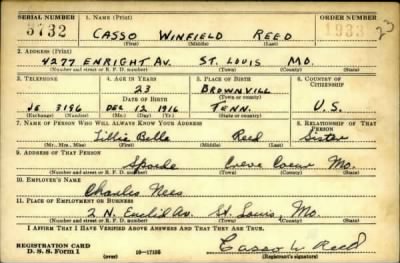 SERIAL NUMBER 1. NAME (Print) ORDER NUMBER
3732 CASSO WINFIELD REED 1933 23
(First) (Middle) (Last)
2. ADDRESS (Print)
4277 ENRIGHT AV. ST. LOUIS MO.
(Number and street or R. F. D. number) (Town) (County) (State)
3. TELEPHONE 4. AGE IN YEARS 5. PLACE OF BIRTH 6. COUNTRY OF CITIZENSHIP
23 BROWNVILL
DATE OF BIRTH (Town or county)
JE 3196 DEC. 12, 1916 TENN. U.S.
(Exchange) (Number) (Mo.) (Day) (Yr.) (State or country)
7. NAME OF PERSON WHO WILL ALWAYS KNOW YOUR ADDRESS 8. RELATIONSHIP OF THAT PERSON
Lillie Bella Reed Sister
(Mr., Mrs., Miss) (First) (Middle) (Last)
9. ADDRESS OF THAT PERSON
Spoede Creve Coeur Mo.
(Number and street or R. F. D. number) (Town) (County) (State)
10. EMPLOYER'S NAME
Charles Nees
11. PLACE OF EMPLOYMENT OR BUSINESS
2 N. Euclid Av. St. Louis, Mo.
(Number and street or R. F. D. number) (Town) (County) (State)
I AFFIRM THAT I HAVE VERIFIED ABOVE ANSWERS AND THAT THEY ARE TRUE.
REGISTRATION CARD
D. S. S. Form 1 (over) 16-17105 Casso W Reed
(Registrant's signature)